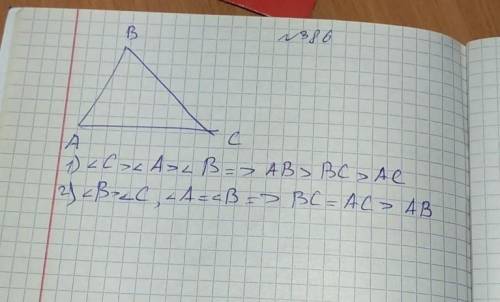 №386
B
A
C
1) ∠C>∠A>∠B => AB>BC>AC
2) ∠B>∠C, ∠A=∠B => BC=AC>AB